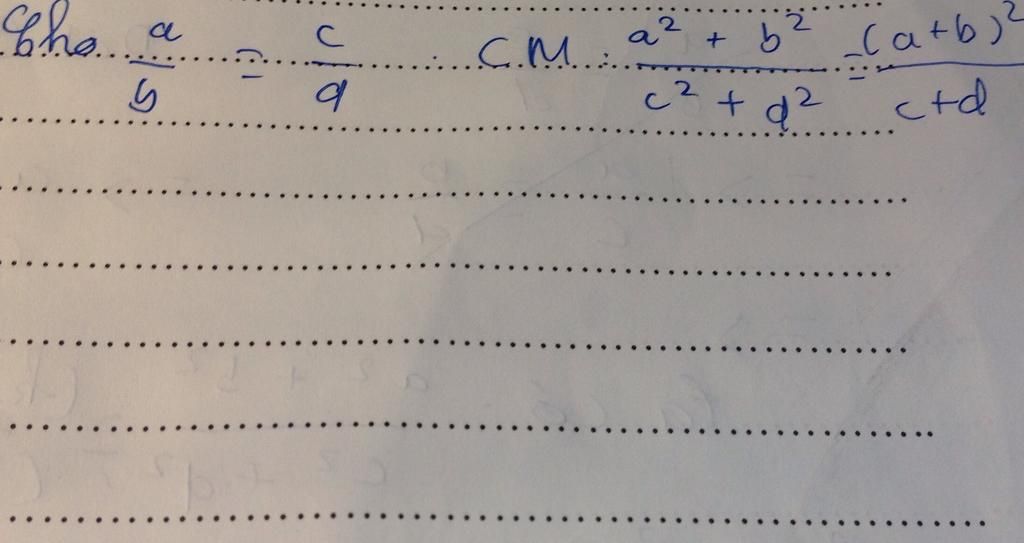 Cho a/b = c/d . CM : (a² + b²)/(c² + d²) = (a+b)²/(c+d)